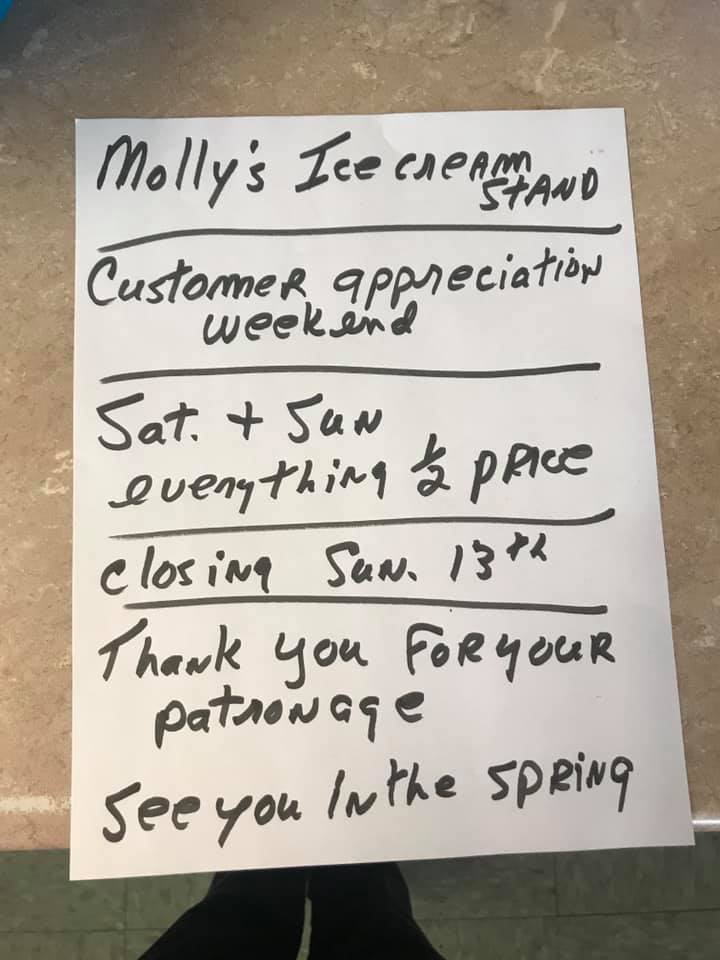 Molly's Ice cream
STAND
Customer appreciation
weekend
Sat. + Sun
everything ½ price
closing Sun. 13th
Thank you For your
patronage
See you In the spring